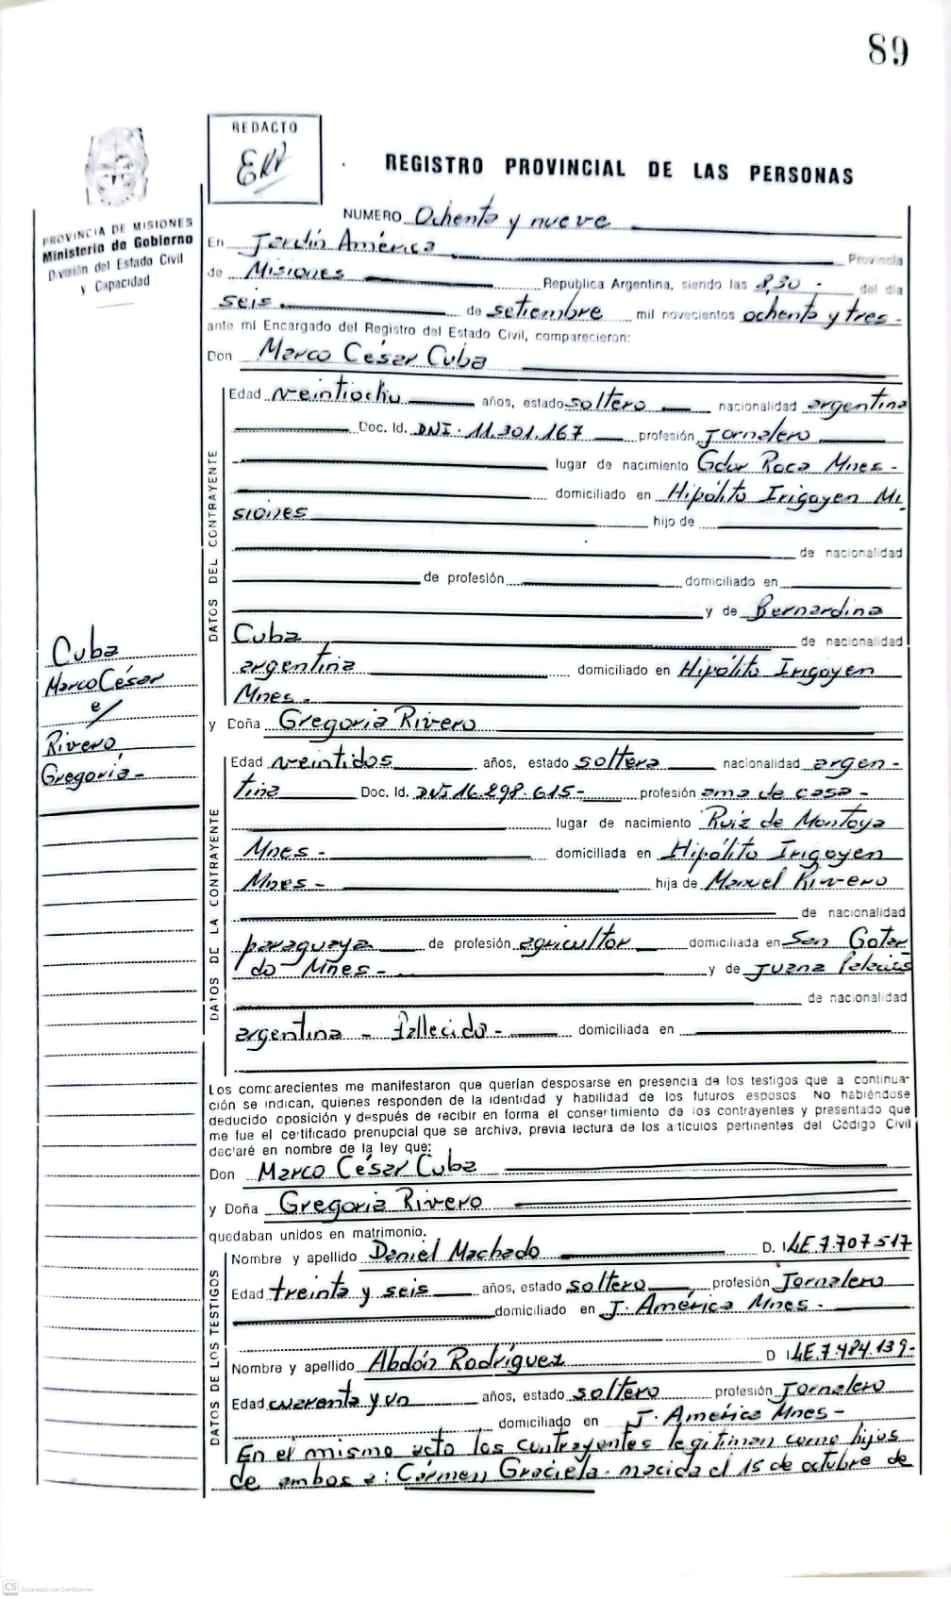 89
REDACTO
REGISTRO PROVINCIAL DE LAS PERSONAS
PROVINCIA DE MISIONES
Ministerio de Gobierno
División del Estado Civil
y Capacidad
NUMERO Ochenta y nueve
En Jardín América Provincia
de Misiones República Argentina, siendo las 8,30 - del día
seis de setiembre mil novecientos ochenta y tres -
ante mi Encargado del Registro del Estado Civil, comparecieron:
Don Marco César Cuba
DATOS DEL CONTRAYENTE
Edad veintiocho años, estado soltero nacionalidad argentina
Doc. Id. DNI. 11.301.167 profesión Jornalero
lugar de nacimiento Gdor Roca Mnes -
domiciliado en Hipólito Irigoyen Mi
siones hijo de
de nacionalidad
de profesión domiciliado en
y de Bernardina
Cuba de nacionalidad
argentina domiciliado en Hipólito Irigoyen
Mnes -
Cuba
Marco César
e/
Rivero,
Gregoria -
y Doña Gregoria Rivero
DATOS DE LA CONTRAYENTE
Edad veintidos años, estado soltera nacionalidad argen-
tina Doc. Id. DNI 16.298.615- profesión ama de casa -
lugar de nacimiento Ruiz de Montoya
Mnes - domiciliada en Hipólito Irigoyen
Mnes - hija de Manuel Rivero
de nacionalidad
paraguaya de profesión agricultor domiciliada en San Gotar
do - Mnes - y de Juana Palacios
de nacionalidad
argentina - fallecida - domiciliada en
Los comparecientes me manifestaron que querían desposarse en presencia de los testigos que a continua-
ción se indican, quienes responden de la identidad y habilidad de los futuros esposos. No habiéndose
deducido oposición y después de recibir en forma el consertimiento de los contrayentes y presentado que
me fue el certificado prenupcial que se archiva, previa lectura de los artículos pertinentes del Código Civil
declaré en nombre de la ley que:
Don Marco César Cuba
y Doña Gregoria Rivero
quedaban unidos en matrimonio.
DATOS DE LOS TESTIGOS
Nombre y apellido Daniel Machado D. I. LE 7.707.517
Edad treinta y seis años, estado soltero profesión Jornalero
domiciliado en J. América Mnes -
Nombre y apellido Abdón Rodríguez D I. LE 7.484.139-
Edad cuarenta y un años, estado soltero profesión Jornalero
domiciliado en J. América Mnes -
En el mismo acto los contrayentes legitiman como hijos
de ambos a: Cármen Graciela - nacida el 15 de octubre de
CS Escaneado con CamScanner